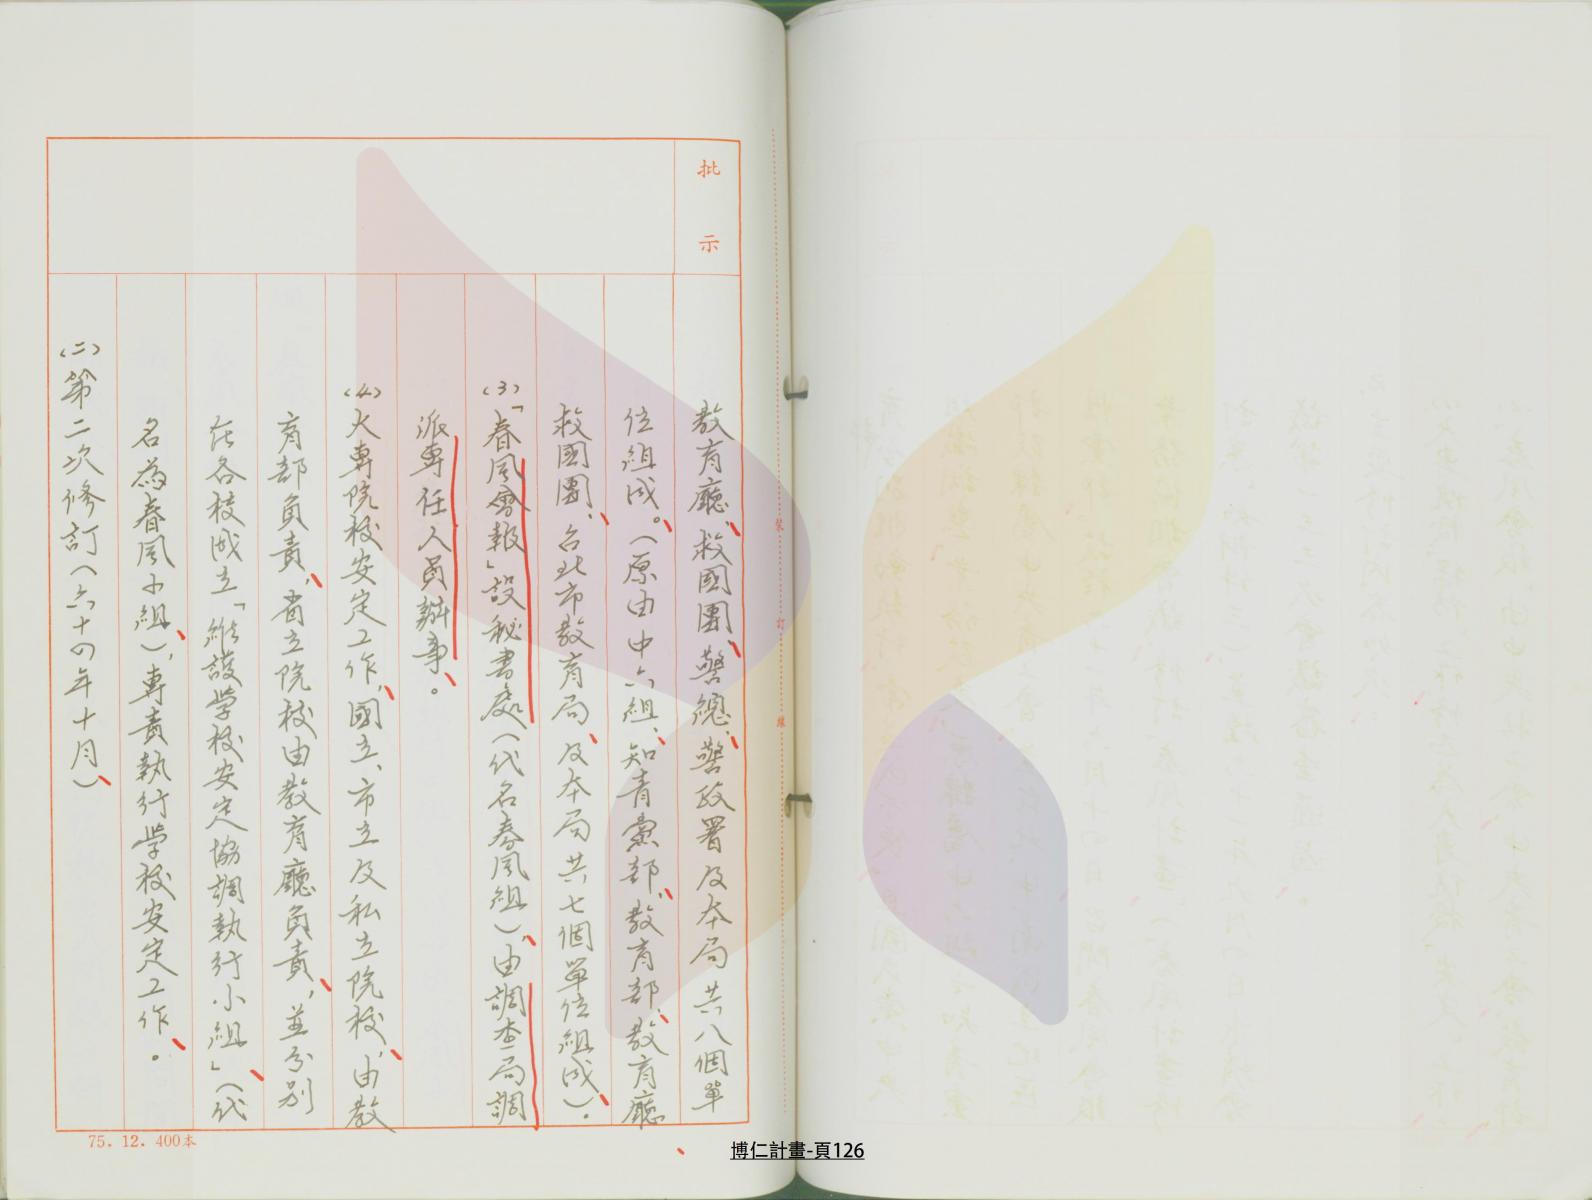 批示
教育廳、救國團、警總、警政署及本局共八個單
位組成。（原由中六組、知青黨部、教育部、教育廳
救國團、台北市教育局、及本局共七個單位組成）。
(3)「春風會報」設秘書處（代名春風組），由調查局調
派專任人員辦事。
(4)大專院校安定工作，國立、市立及私立院校，由教
育部負責，省立院校由教育廳負責，並分別
在各校成立「維護学校安定協調執行小組」（代
名為春風小組），專責執行学校安定工作。
(二)第二次修訂（六十四年十月）
裝訂線
75. 12. 400本
博仁計畫-頁126